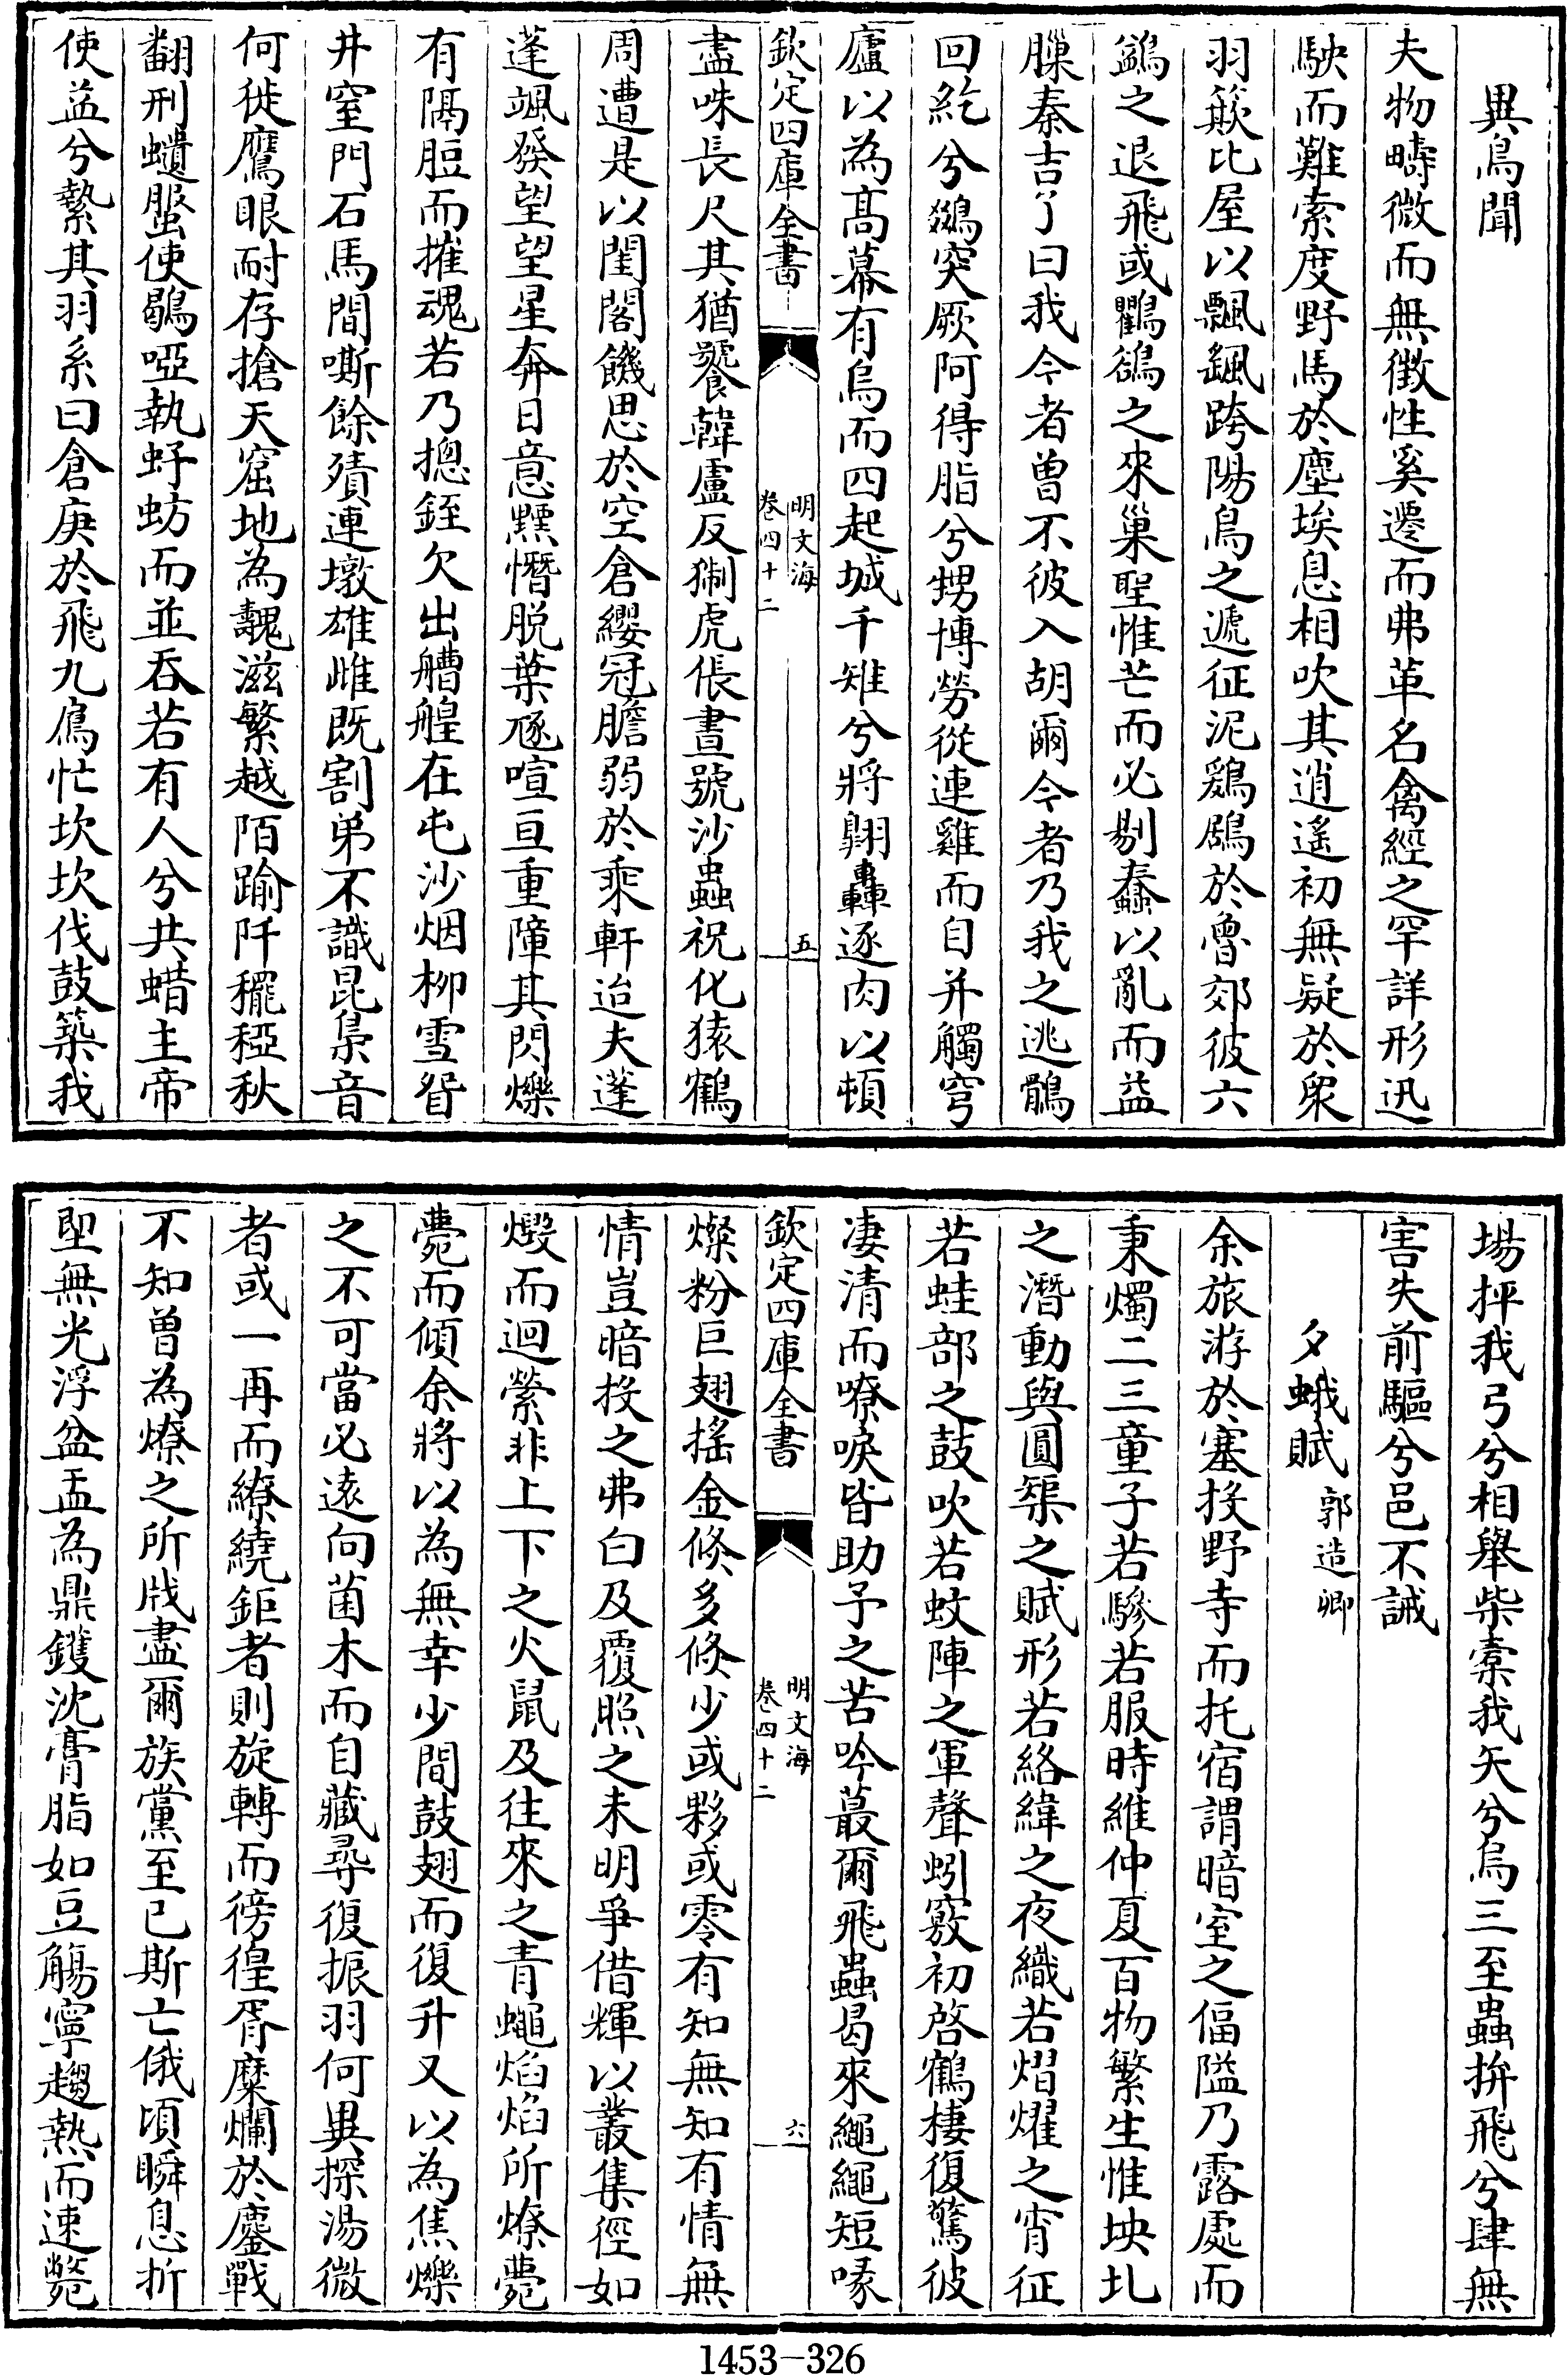 異鳥聞
夫物疇微而無徴性奚遷而弗革名禽經之罕詳形迅
駛而難索度野馬於塵埃息相吹其逍遥初無疑於衆
羽簌比屋以飄颻跨陽鳥之遞征泥鶢鶋於魯郊彼六
鷁之退飛或鸜鵒之來巢聖惟芒而必剔蠢以亂而益
臊秦吉了曰我今者曽不彼入胡爾今者乃我之逃鶻
回紇兮鷚突厥阿得脂兮甥博勞從連雞而自并觸穹
廬以為髙幕有烏而四起城千雉兮將翺轟逐肉以頓
盡咮長尺其猶饕韓盧反猘虎倀晝號沙蟲祝化猿鶴
周遭是以閨閣饑思於空倉纓冠膽弱於乘軒迨夫蓬
蓬颯發望望星奔日意㸃憯脱葉豗喧亘重障其閃爍
有隔脰而摧魂若乃摠銍欠出艚艎在屯沙烟柳雪眢
井窒門石馬間嘶餘殨連墩雄雌既割弟不識昆梟音
何徙鷹眼耐存搶天窟地為䰫滋繁越陌踰阡䆉稏秋
翻刑蟦䘌使鶡啞執虸蚄而並吞若有人兮共蜡主帝
使益兮縶其羽系曰倉庚於飛九鳸忙坎坎伐鼓築我
欽定四庫全書
明文海
卷四十二
五
場抨我弓兮相舉柴櫜我矢兮烏三至蟲拚飛兮肆無
害失前驅兮邑不誡
夕蛾賦 郭造卿
余旅游於塞投野寺而托宿謂暗室之偪隘乃露處而
秉燭二三童子若驂若服時維仲夏百物繁生惟坱圠
之潛動與圓槼之賦形若絡緯之夜織若熠燿之宵征
若蛙部之鼓吹若蚊陣之軍聲蚓竅初啓鶴棲復驚彼
淒清而嘹唳皆助予之苦吟蕞爾飛蟲曷來繩繩短喙
燦粉巨翅揺金倐多倐少或夥或零有知無知有情無
情豈暗投之弗白及覆照之未明爭借輝以叢集徑如
燬而迴縈非上下之火鼠及往來之青蠅焰焰所燎薨
薨而傾余將以為無幸少間鼓翅而復升又以為焦爍
之不可當必逺向菌木而自藏尋復振羽何異探湯微
者或一再而繚繞鉅者則旋轉而徬徨胥糜爛於鏖戰
不知曽為燎之所戕盡爾族黨至已斯亡俄頃瞬息折
堲無光浮盆盂為鼎鑊沈膏脂如豆觴寧趨熱而速斃
欽定四庫全書
明文海
卷四十二
六
1453-326